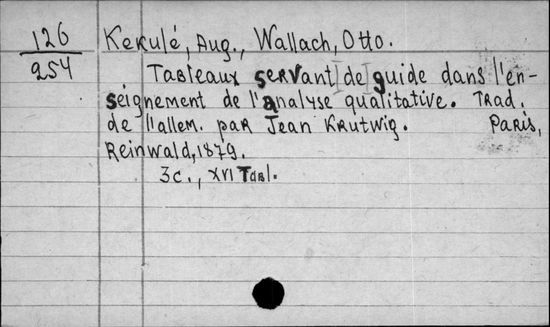 126
254
Kekulé, Aug., Wallach, Otto.
Tableaux servant de guide dans l'en-
seignement de l'analyse qualitative. Trad.
de l'allem. par Jean Krutwig. Paris,
Reinwald, 1879.
3c., XVI Tabl.